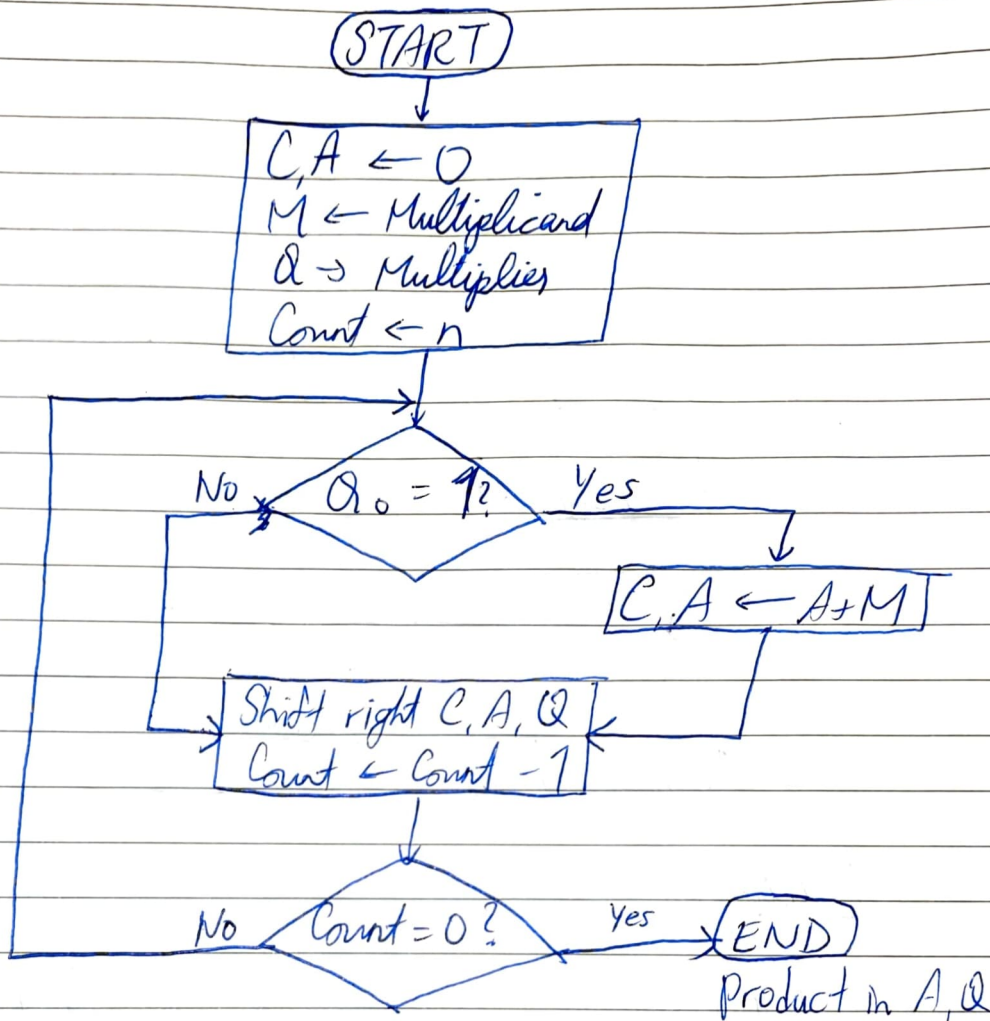 START
C, A ← 0
M ← Multiplicand
Q → Multiplier
Count ← n
Q₀ = 1?
No
Yes
C, A ← A+M
Shift right C, A, Q
Count ← Count - 1
Count = 0?
No
Yes
END
Product in A, Q